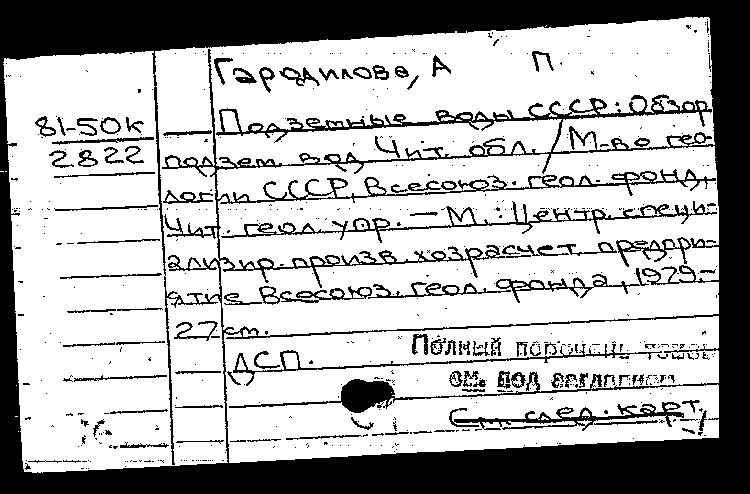 Гародилова, А П
81-50к Подземные воды СССР: Обзор
2822 подзем. вод Чит. обл. / М-во гео-
логии СССР, Всесоюз. геол. фонд,
Чит. геол. упр. — М.: Центр. специ-
ализир. произв. хозрасчет. предпри-
ятие Всесоюз. геол. фонда, 1979.-
27 см.
ДСП.
Полный перечень томов
см. под заглавием
См. след. карт.